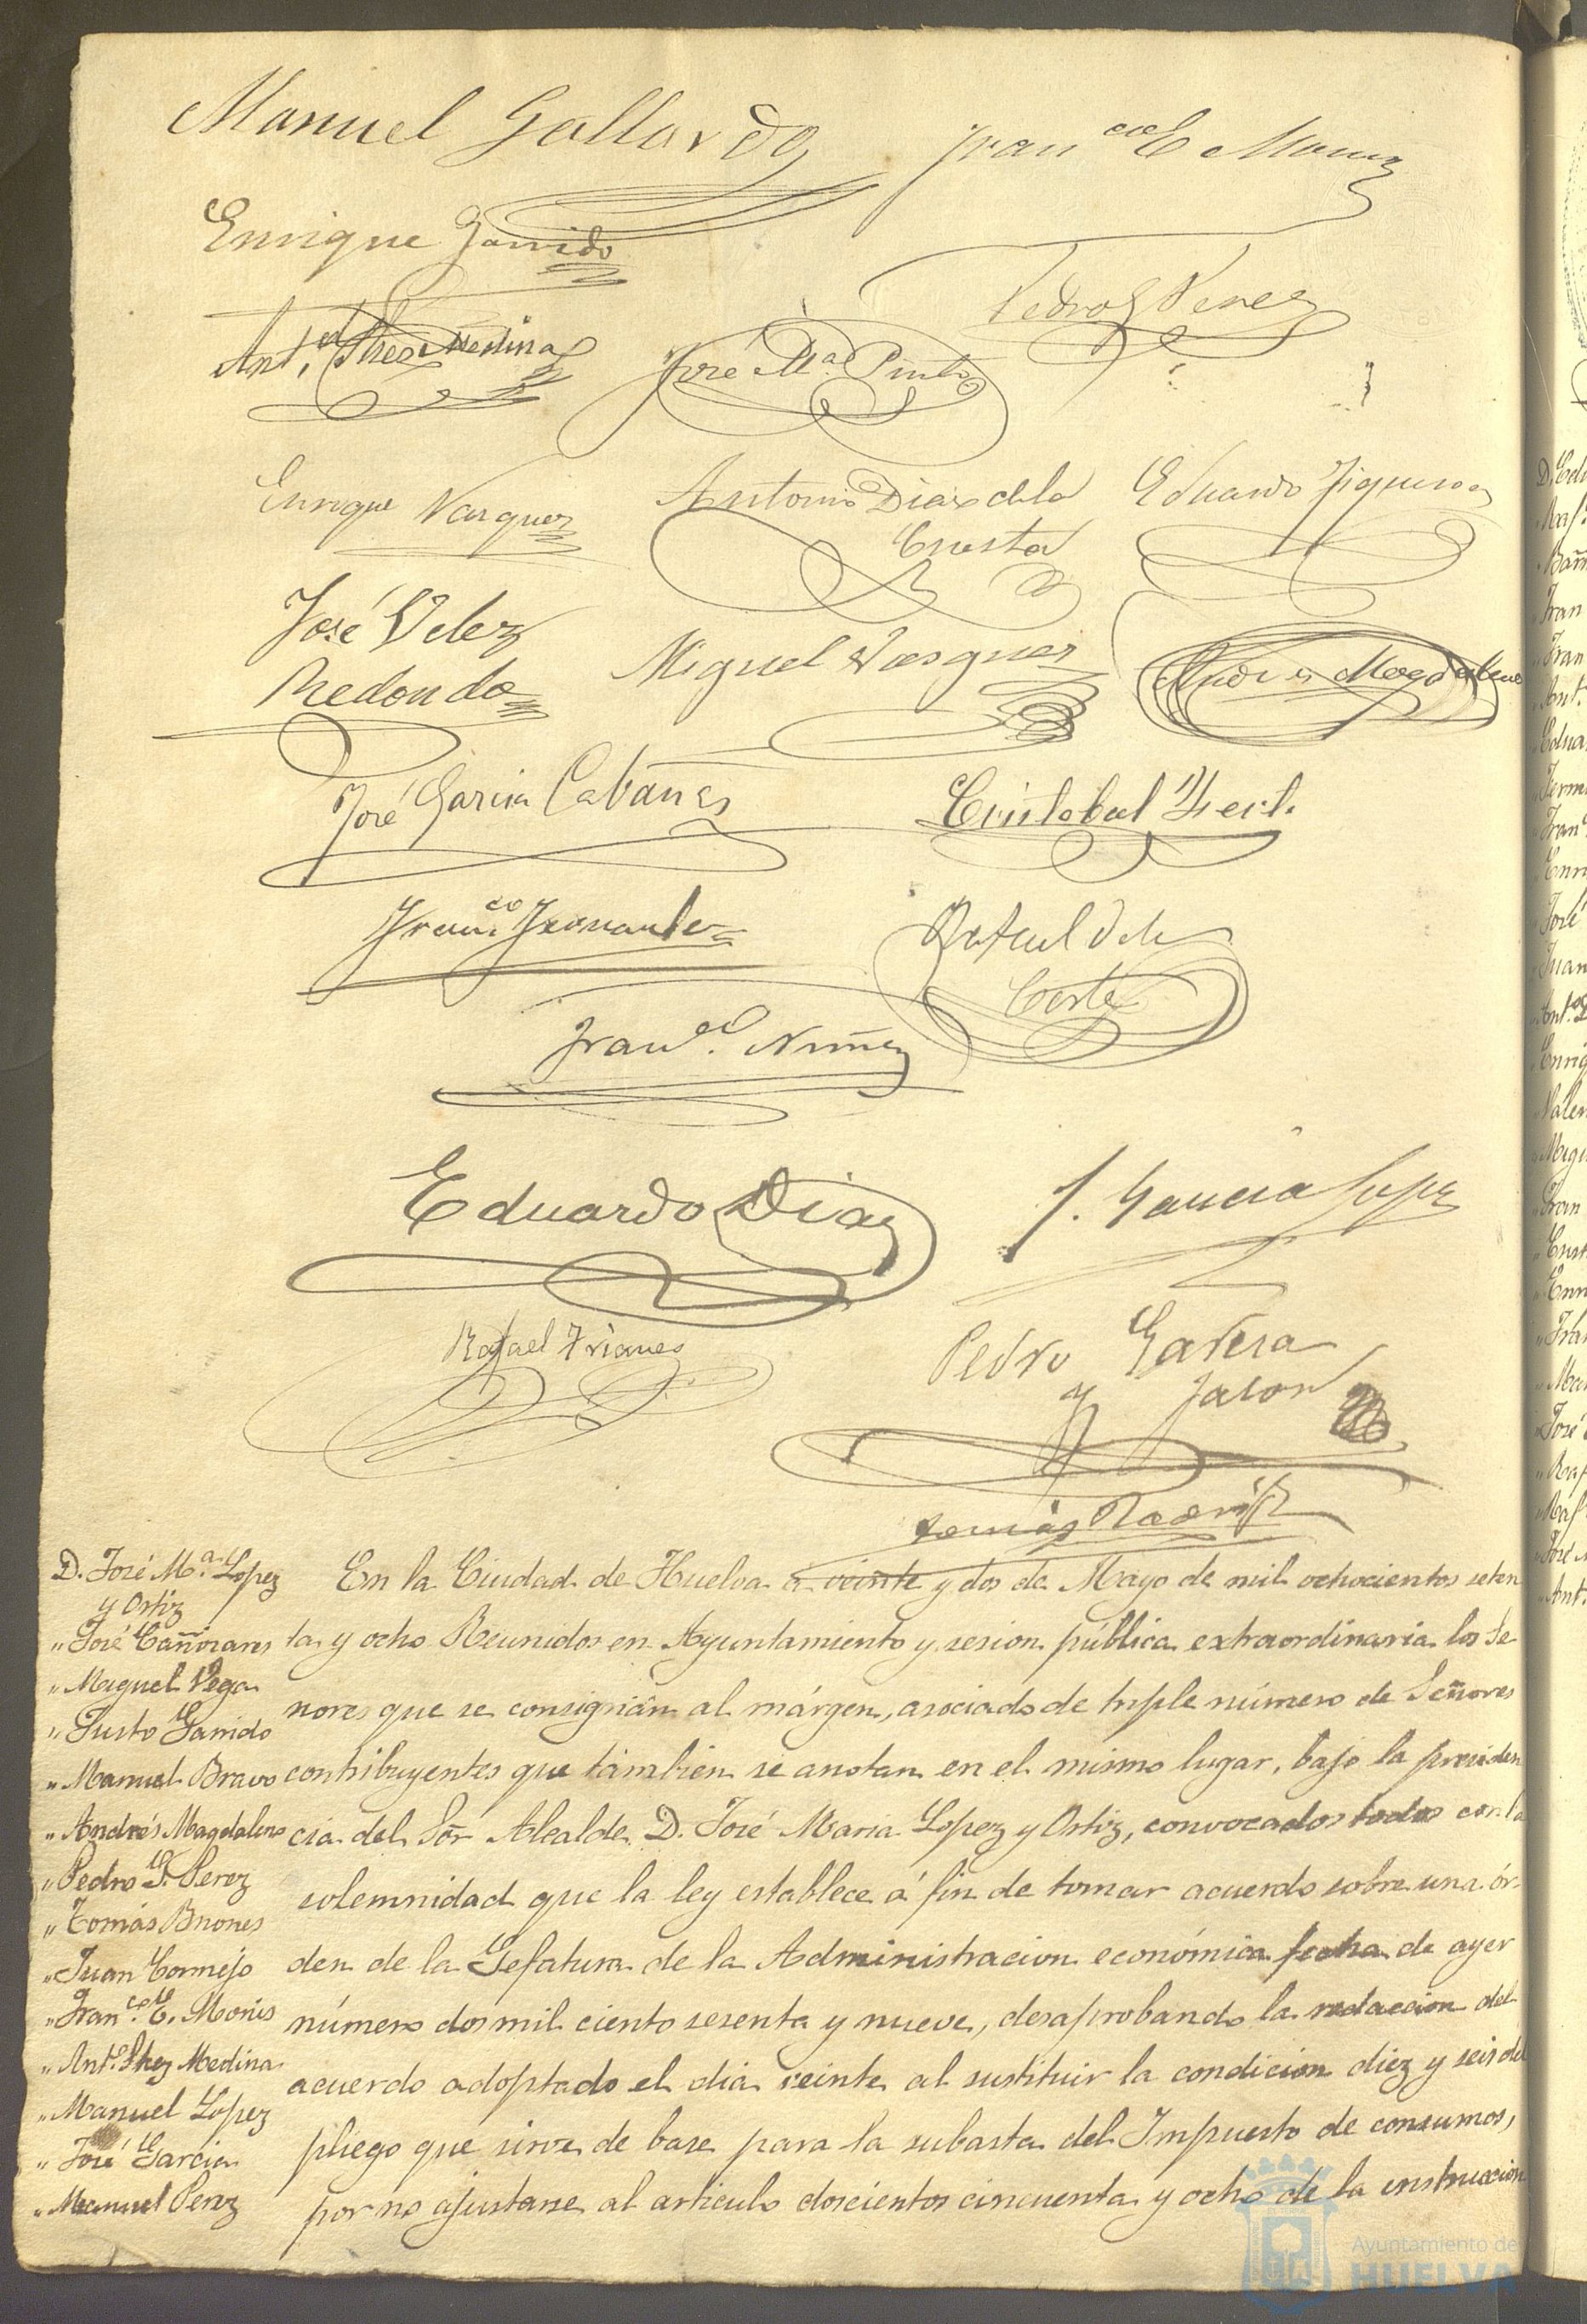 Manuel Gallardo
Fran.co E Moniz
Enrique Garrido
Pedro G Perez
Ant.o Shez Medina
José M.a Pinto
Enrique Vazquez
Antonio Diaz de la
Cuesta
Eduardo Figueroa
José Velez
Redondo
Miguel Vazquez
Andrés Magdaleno
José Garcia Cabañas
Cristobal
Fran.co Fernandez
Rafael de la
Corte
Fran.co Nuñez
Eduardo Diaz
J. Garcia Lopez
Rafael Trianes
Pedro Garera
y Jalon
Tomás Rodrig
D. José M.a Lopez
y Ortiz
" José Cañizares
" Miguel Vega
" Justo Garrido
" Manuel Bravo
" Andrés Magdaleno
" Pedro G. Perez
" Tomás Briones
" Juan Cornejo
" Fran.co E. Monis
" Ant.o Shez Medina
" Manuel Lopez
" José Garcia
" Manuel Perez
En la Ciudad de Huelva a veinte y dos de Mayo de mil ochocientos seten
ta y ocho Reunidos en Ayuntamiento y sesion pública extraordinaria los Se
nores que se consignan al márgen, asociado de triple número de Señores
contribuyentes que tambien se anotan en el mismo lugar, bajo la presiden
cia del Sõr Alcalde D. José Maria Lopez y Ortiz, convocados todos con la
solemnidad que la ley establece á fin de tomar acuerdo sobre una ór-
den de la Gefatura de la Administracion económica fecha de ayer
número dos mil ciento sesenta y nueve, desaprobando la redaccion del
acuerdo adoptado el dia veinte al sustituir la condicion diez y seis del
pliego que sirve de base para la subasta del Impuesto de consumos,
por no ajustarse al articulo doscientos cincuenta y ocho de la instruccion
Ayuntamiento de
HUELVA